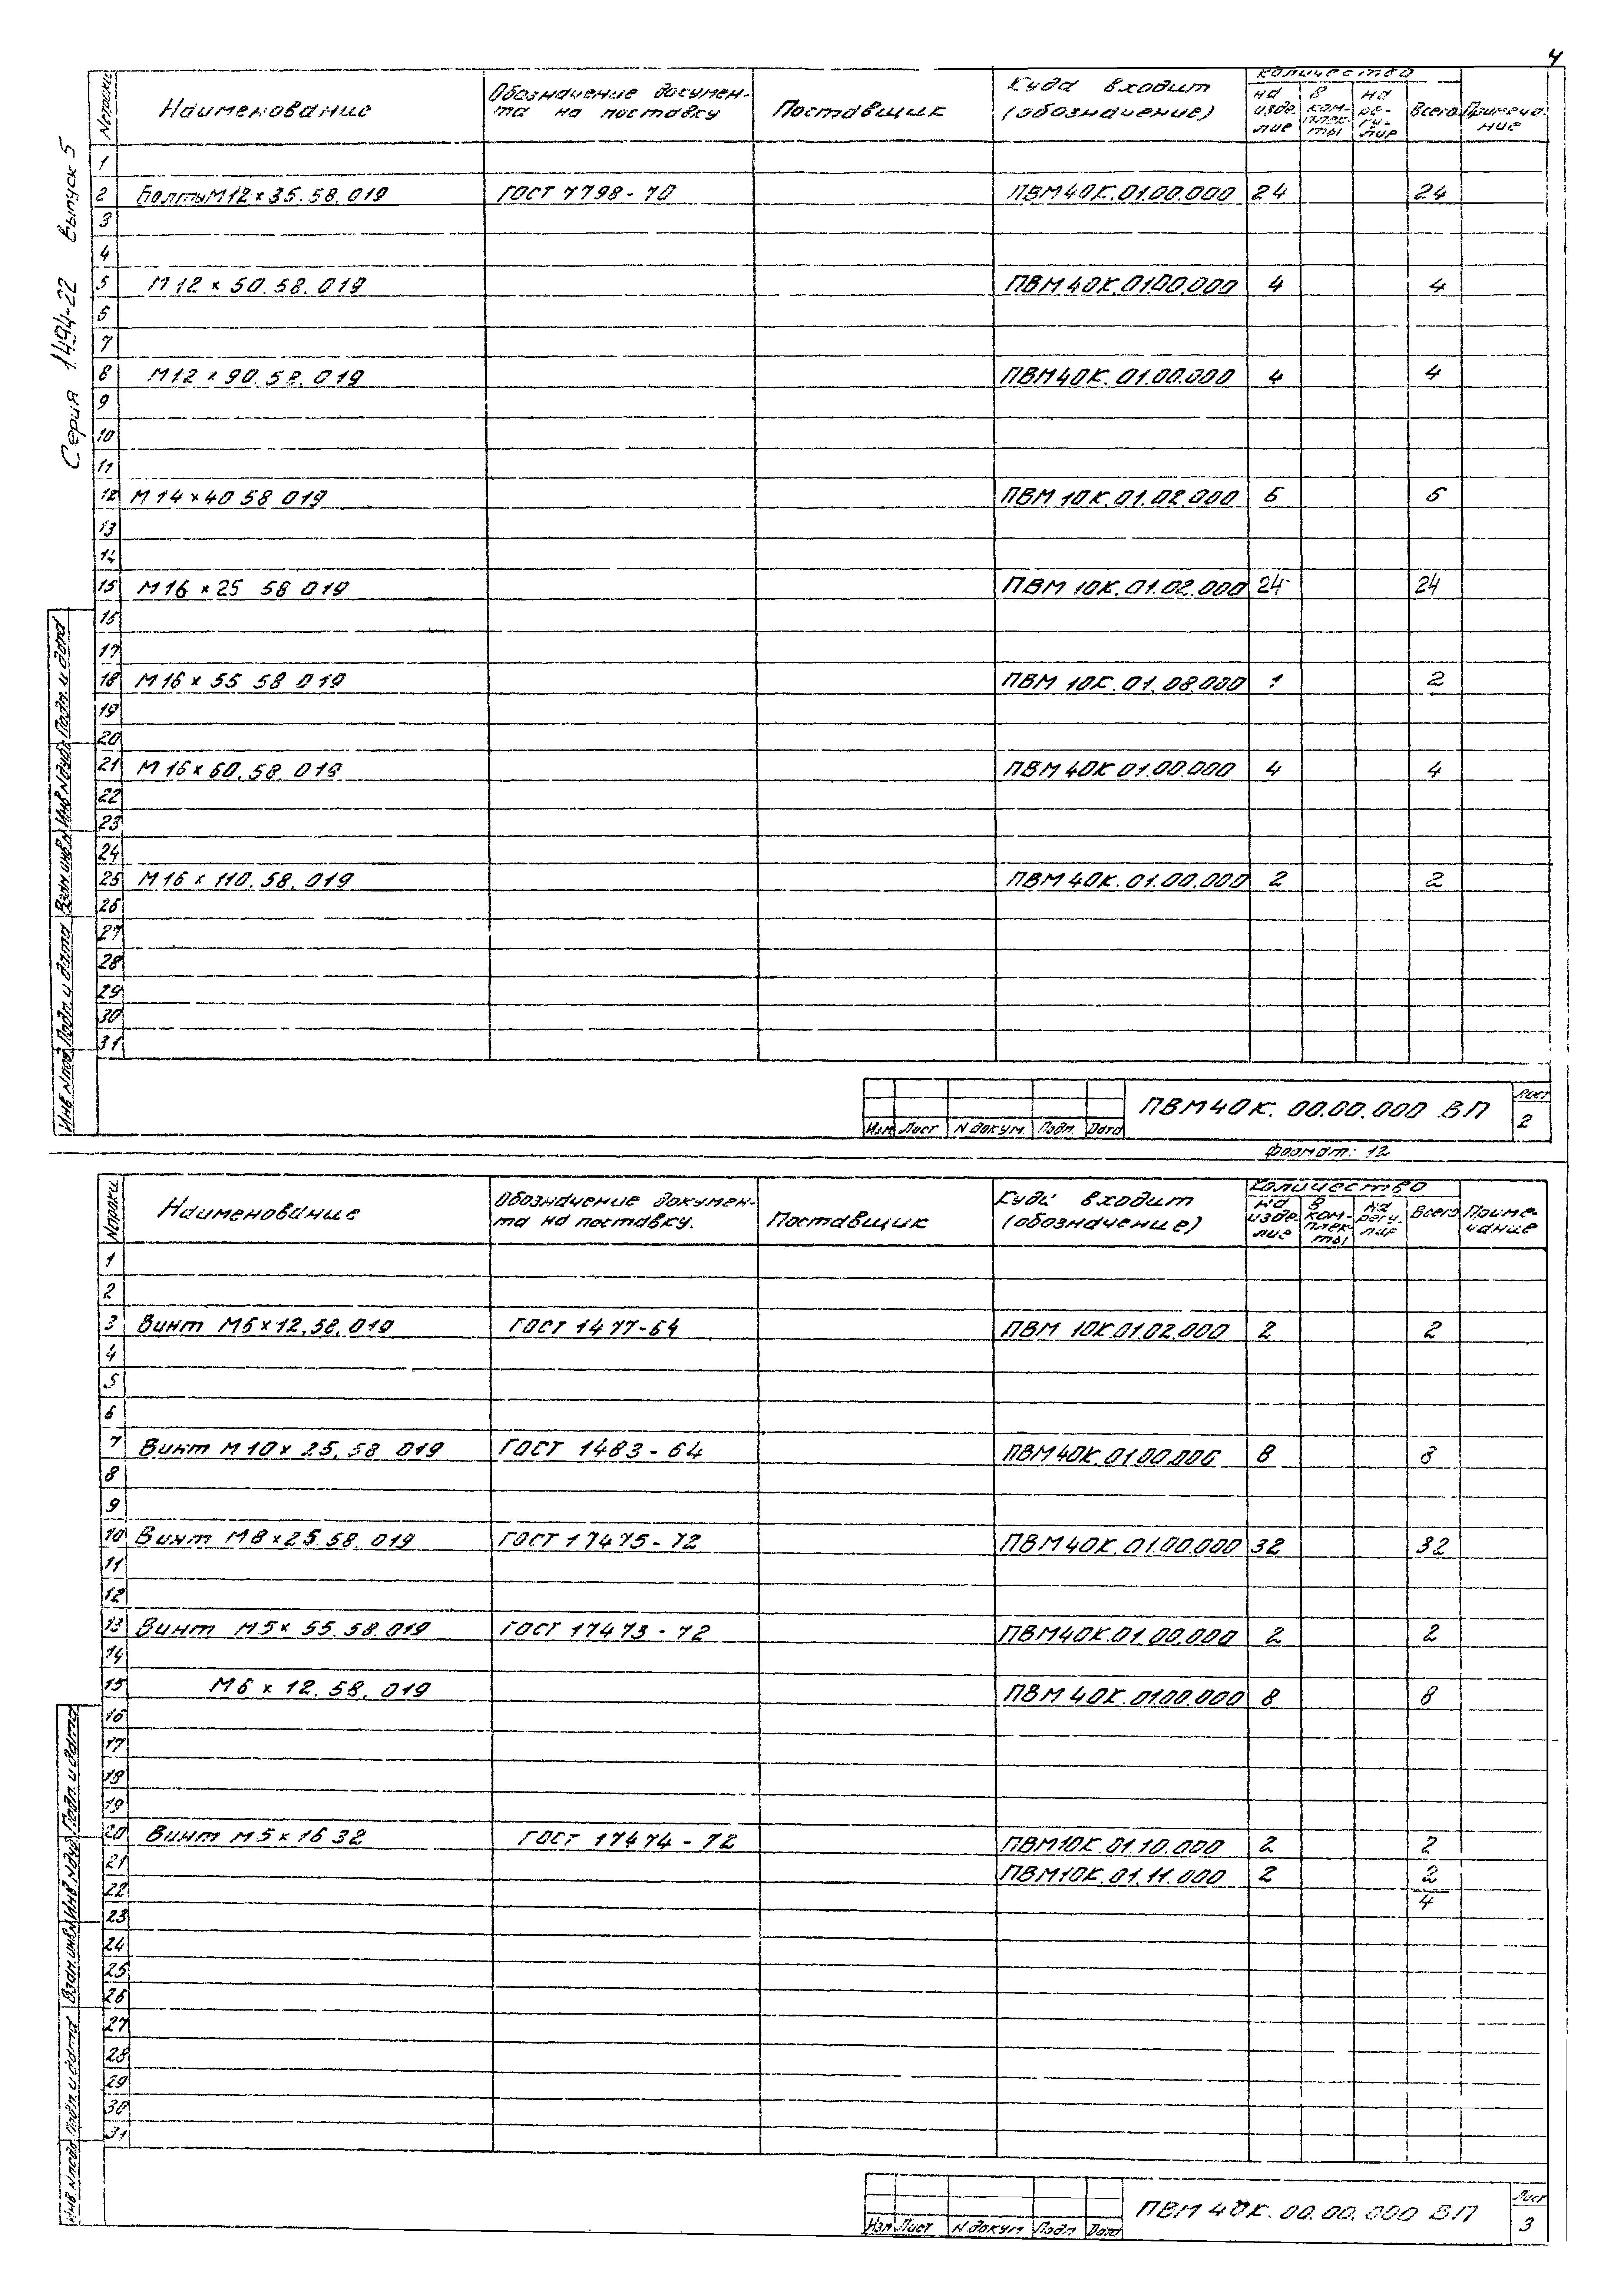 4
Серия 1.494-22 Выпуск 5
№ строки Наименование Обозначение документа на поставку Поставщик Куда входит (обозначение) Количество на изделие в комплекты на регулир Всего Примечание
1
2 Болты М12×35.58.019 ГОСТ 7798-70 ПВМ40К.01.00.000 24 24
3
4
5 М12×50.58.019 ПВМ40К.01.00.000 4 4
6
7
8 М12×90.58.019 ПВМ40К.01.00.000 4 4
9
10
11
12 М14×40 58 019 ПВМ 10К.01.02.000 6 6
13
14
15 М16×25 58 019 ПВМ 10К.01.02.000 24 24
16
17
18 М16×55 58 019 ПВМ 10К.01.08.000 1 2
19
20
21 М16×60.58.019 ПВМ 40К.01.00.000 4 4
22
23
24
25 М16×110.58.019 ПВМ 40К.01.00.000 2 2
26
27
28
29
30
31
Инв. № подл. Подп. и дата Взам. инв. № Инв. № дубл. Подп. и дата
Изм Лист № докум. Подп. Дата ПВМ40К.00.00.000 ВП Лист 2
Формат: 12
№ строки Наименование Обозначение документа на поставку. Поставщик Куда входит (обозначение) Количество на изделие в комплекты на регулир Всего Примечание
1
2
3 Винт М6×12.58.019 ГОСТ 1477-64 ПВМ 10К.01.02.000 2 2
4
5
6
7 Винт М10×25.58 019 ГОСТ 1483-64 ПВМ40К.01.00.000 8 8
8
9
10 Винт М8×25.58.019 ГОСТ 17475-72 ПВМ40К.01.00.000 32 32
11
12
13 Винт М5×55.58.019 ГОСТ 17473-72 ПВМ40К.01.00.000 2 2
14
15 М6×12.58.019 ПВМ 40К.01.00.000 8 8
16
17
18
19
20 Винт М5×16 32 ГОСТ 17474-72 ПВМ10К.01.10.000 2 2
21 ПВМ10К.01.11.000 2 2
22 4
23
24
25
26
27
28
29
30
31
Инв. № подл. Подп. и дата Взам. инв. № Инв. № дубл. Подп. и дата
Изм Лист № докум Подп Дата ПВМ 40К.00.00.000 ВП Лист 3